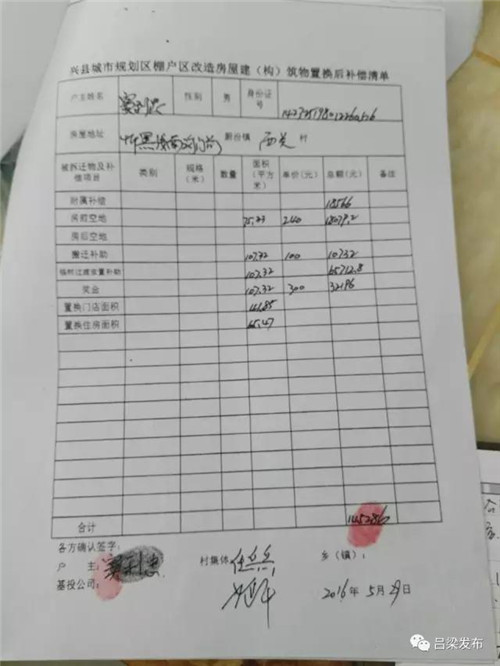 兴县城市规划区棚户区改造房屋建（构）筑物置换后补偿清单
户主姓名 性别 男 身份证号
房屋地址 蔚汾镇 西关 村
被拆迁物及补偿项目 类别 规格（米） 数量 面积（平方米） 单价(元) 总额(元) 备注
附属补偿 18566
房前空地 75.33 240 18079.2
房后空地
搬迁补助 107.32 100 10732
临时过渡安置补助 107.32 65712.8
奖金 107.32 300 32196
置换门店面积 41.85
置换住房面积 65.47
合计 145286
各方确认签字：
户 主： 村集体： 乡（镇）：
基投公司：
2016 年 5 月 29 日
吕梁发布